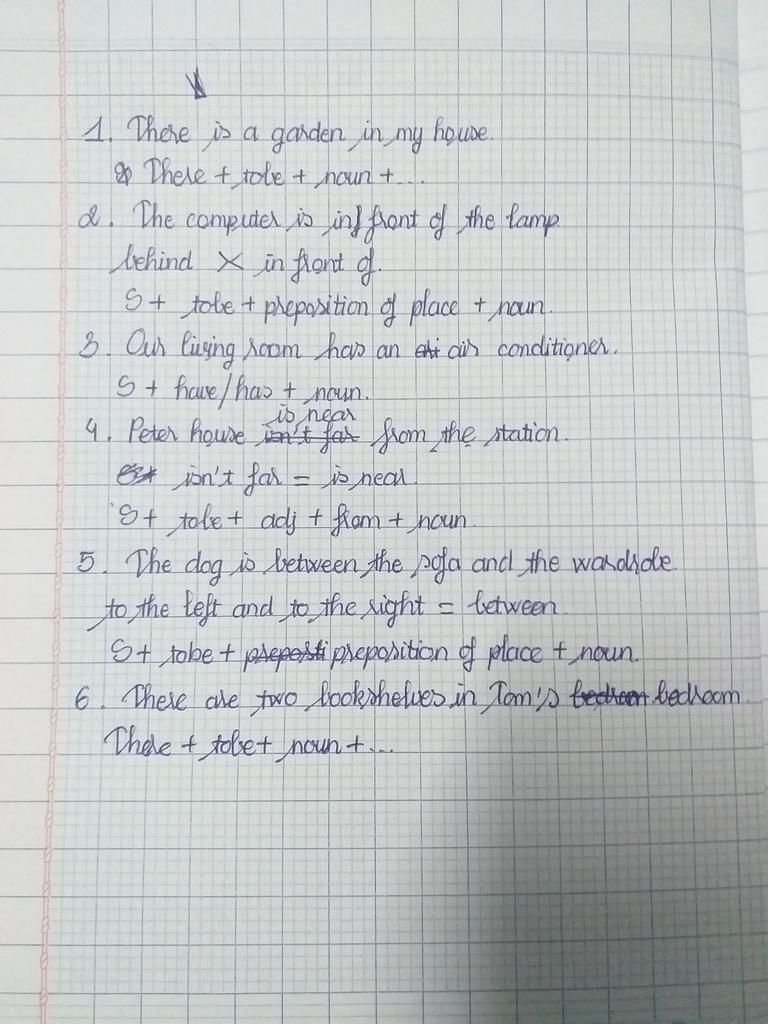 1. There is a garden in my house.
There + tobe + noun + ...
2. The computer is in front of the lamp
behind X in front of.
S + tobe + preposition of place + noun.
3. Our living room has an air conditioner.
S + have/has + noun.
is near
4. Peter house isn't far from the station.
isn't far = is near.
S + tobe + adj + from + noun.
5. The dog is between the sofa and the wardrobe.
to the left and to the right = between.
S + tobe + preposition of place + noun.
6. There are two bookshelves in Tom's bedroom bedroom.
There + tobe + noun + ...